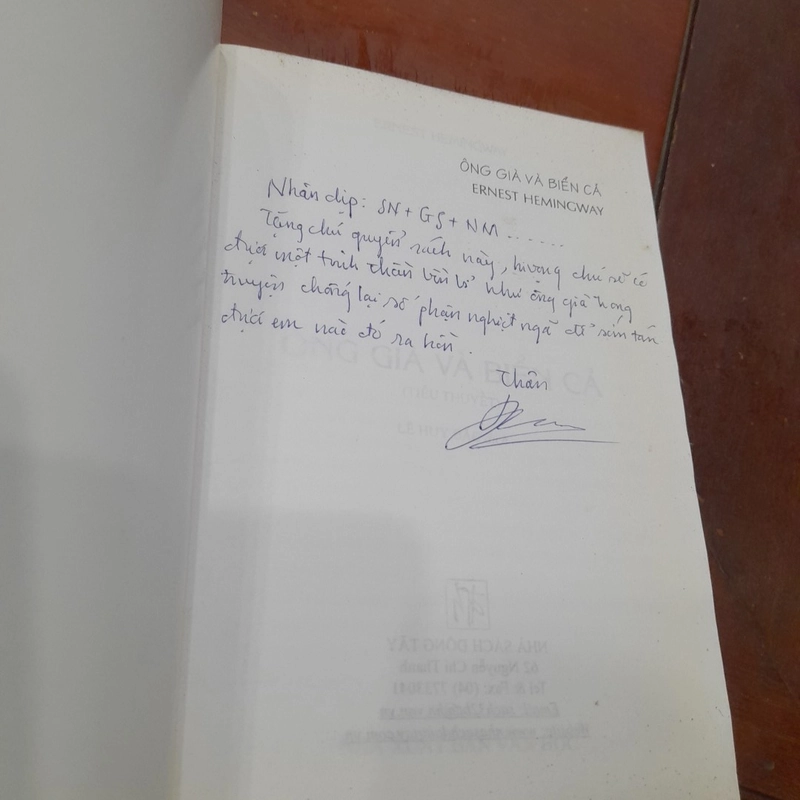 ÔNG GIÀ VÀ BIỂN CẢ
ERNEST HEMINGWAY
Nhân dịp: SN + GS + NM ......
Tặng chú quyển sách này, hi vọng chú sẽ có
được một tinh thần bền bỉ như ông già trong
truyện chống lại số phận nghiệt ngã để sớm tán
được em nào đó ra hồn.
Thân
ÔNG GIÀ VÀ BIỂN CẢ
NHÀ SÁCH ĐÔNG TÂY
62 Nguyễn Chí Thanh
Tel & Fax: (04) 7733041